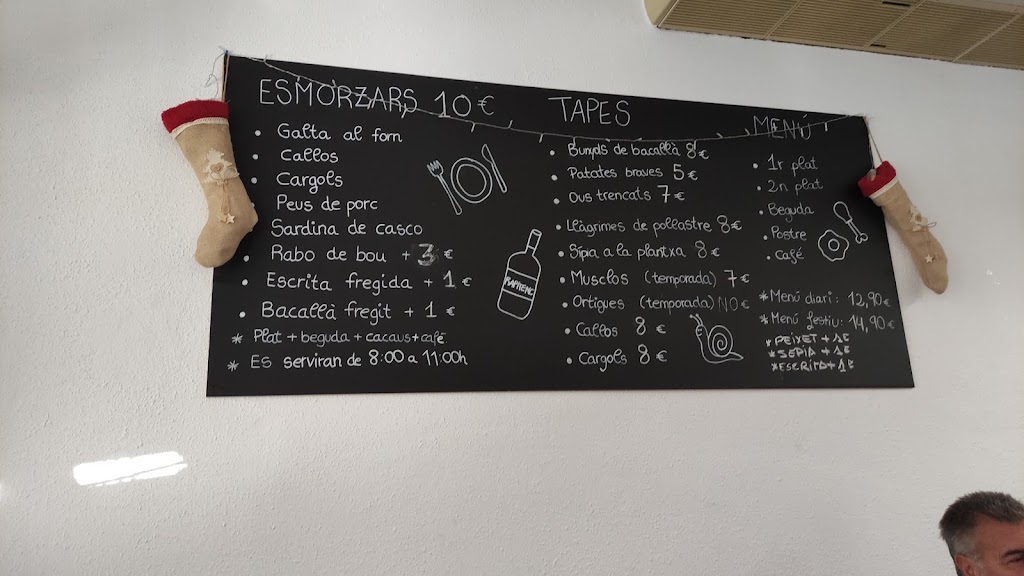 ESMORZARS 10€
• Galta al forn
• Callos
• Cargols
Peus de porc
Sardina de casco
• Rabo de bou + 3 €
• Escrita fregida + 1 €
• Bacallà fregit + 1 €
* Plat + beguda + cacaus + café
* ES serviran de 8:00 a 11:00h
TAPES
• Bunyols de bacallà 8€
• Patates braves 5 €
• Ous trencats 7€
• Llàgrimes de pollastre 8€
• Sípia a la plantxa 8 €
• Musclos (temporada) 7 €
• Ortigues (temporada) NO €
• Callos 8 €
• Cargols 8 €
MENÚ
• 1r plat
• 2n plat
• Beguda
• Postre
• Café
* Menú diari: 12,90€
* Menú festiu: 14,90€
* PEIXET + 1€
* SEPIA + 1€
* ESCRITA + 1€